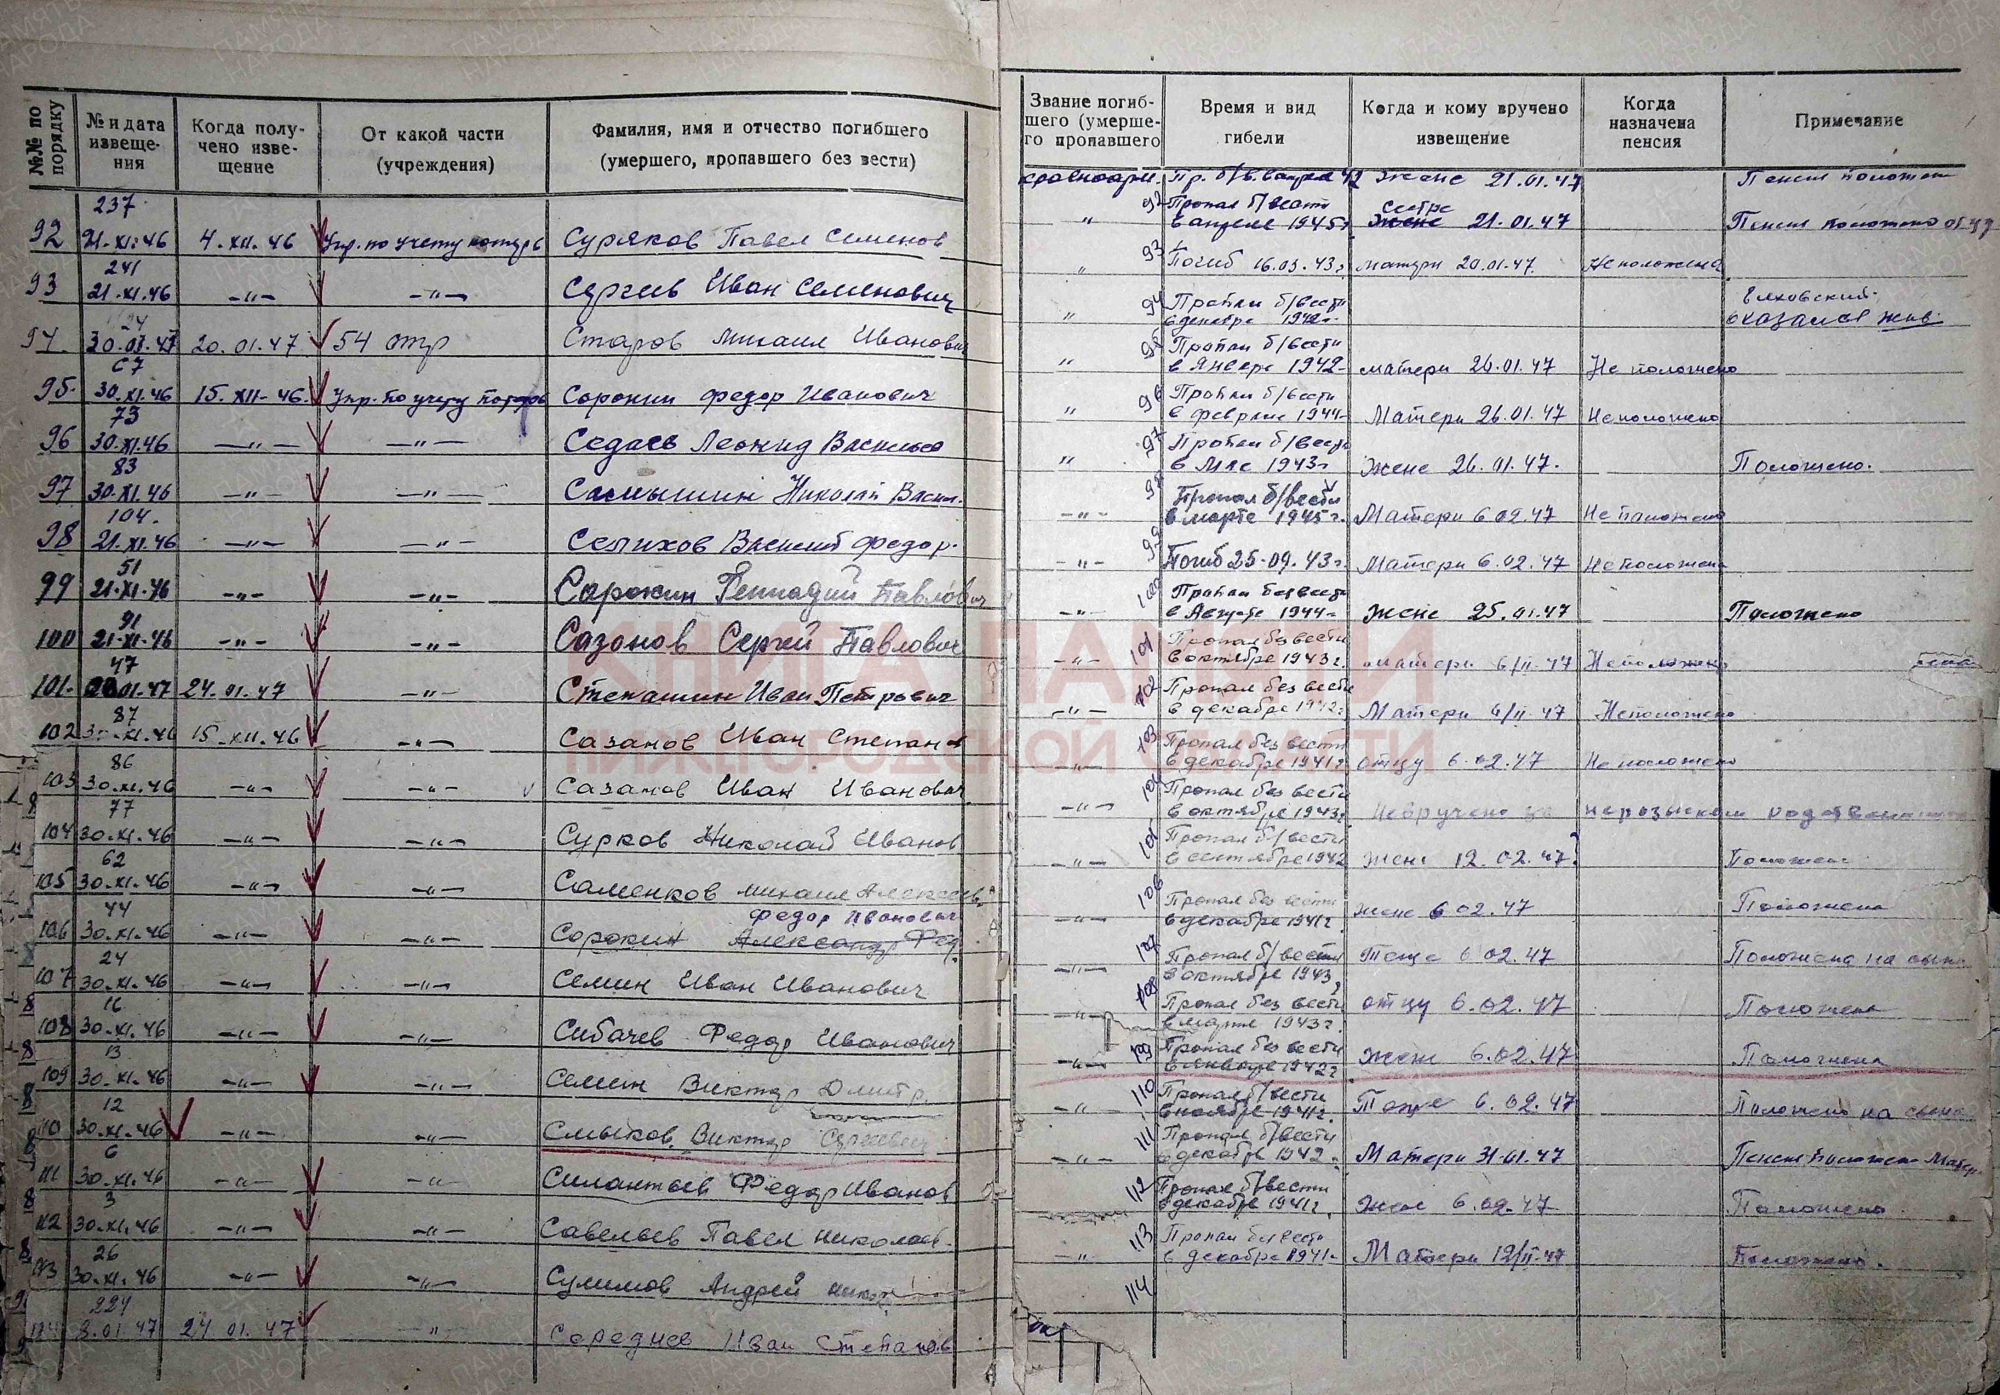 №№ по порядку
№ и дата извеще-ния
Когда полу-чено изве-щение
От какой части (учреждения)
Фамилия, имя и отчество погибшего (умершего, пропавшего без вести)
Звание погиб-шего (умерше-го пропавшего
Время и вид гибели
Когда и кому вручено извещение
Когда назначена пенсия
Примечание
237
92 21-XI-46 4.XII.46 Упр. по учету Суряков Павел Семенов
241
93 21-XI-46 -"- -"- Сергеев Иван Семенович
24
94. 20.01.47 54 отр Старов Михаил Иванович
67
95. 30.XI.46 15.XII-46. Упр. по учету Сорокин Федор Иванович
73
96 30.XI.46 -"- -"- Седаев Леонид
83
97 30.XI.46 -"- -"- Николай Васил.
104.
98 21.XI.46 -"- -"- Селихов Василий Федор.
51
99 21-XI-46 -"- -"- Сорокин Геннадий Павлович
91
100 21-XI-46 -"- -"- Сазонов Сергей Павлович
47
101. 01.47 24.01.47 -"- Степашин Иван Петрович
87
102 15.XII.46 -"- Сазанов Иван Степан
86
103 30.XI.46 -"- -"- Сазанов Иван Иванович
77
104 30.XI.46 -"- -"- Сурков Николай Иванов
62
105 30.XI.46 -"- -"- Саменков Михаил Алексеев.
44 Федор Иванович
106 30.XI.46 -"- -"- Сорокин Александр Фед.
24
107 30.XI.46 -"- -"- Семин Иван Иванович
16
108 30.XI.46 -"- -"- Сибачев Федор Иванович
13
109 30.XI.46 -"- -"- Семин Виктор Дмитр.
12
110 30.XI.46 -"- -"- Смыков Виктор Сергеевич
6
111 30.XI.46 -"- -"- Силантьев Федор Иванов
3
112 30.XI.46 -"- -"- Савельев Павел Николаев.
26
113 30.XI.46 -"- -"- Сулимов Андрей
224
114 8.01.47 24.01.47 -"- Иван Степанов
красноарм. Пр. б/в. 42 Жене 21.01.47 Пенсия положен
92 Пропал б/вести сестре
" в апреле 1945г. Жене 21.01.47 Пенсия положено
93
" Погиб 16.03.43г матери 20.01.47 Не положена
94 Пропал б/вести
" в декабре 1942г.
оказался жив.
95 Пропал б/вести
" в Январе 1942- матери 26.01.47 Не положено
96 Пропал б/вести
" в феврале 1944- Матери 26.01.47 Не положено
97 Пропал б/вести
" в Мае 1943г Жене 26.01.47. Положено.
98 Пропал б/вести
-"- в марте 1945г. Матери 6.02.47 Не положено
99
-"- Погиб 25-09.43г. Матери 6.02.47 Не положена
100 Пропал без вести
-"- в Августе 1944г Жене 25.01.47 Положено
101 Пропал без вести
-"- в октябре 1943г. матери 6/II-47 Не положено
102 Пропал без вести
-"- в декабре 1942г. Матери 6/II-47 Не положено
103 Пропал без вести
-"- в декабре 1941г отцу 6.02.47 Не положено
104 Пропал без вести
-"- в октябре 1943г Не вручено за нерозыском
Пропал б/вести
-"- в сентябре 1942 Жене 12.02.47 Положена
106 Пропал без вести
-"- в декабре 1941г Жене 6 02.47 Положена
107 Пропал б/вести
-"- в октябре 1943 Теще 6 02.47 Положена на сына
108 Пропал без вести
-"- в марте 1943г. отцу 6.02.47 Положена
109 Пропал без вести
-"- в январе 1942г Жене 6.02.47 Положена
110 Пропал б/вести
-"- в ноябре 1941г. 6.02.47 Положено на сына
111 Пропал б/вести
-"- в декабре 1942г. Матери 31.01.47 Пенсия положена
112 Пропал б/вести
в декабре 1941г. Жене 6.02.47 Положено.
113 Пропал без вести
" в декабре 1941- Матери 12/II-47 Положено.
114
КНИГА ПАМЯТИ
НИЖЕГОРОДСКОЙ ОБЛАСТИ
ПАМЯТЬ НАРОДА